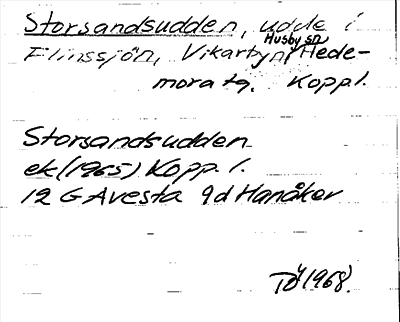 Storsandsudden, udde i
Flinssjön, Vikarbyn, Husby sn, Hede-
mora tg. Koppl.
Storsandsudden
ek (1965) Kopp. l.
12 G Avesta 9d Hanåker
1968.